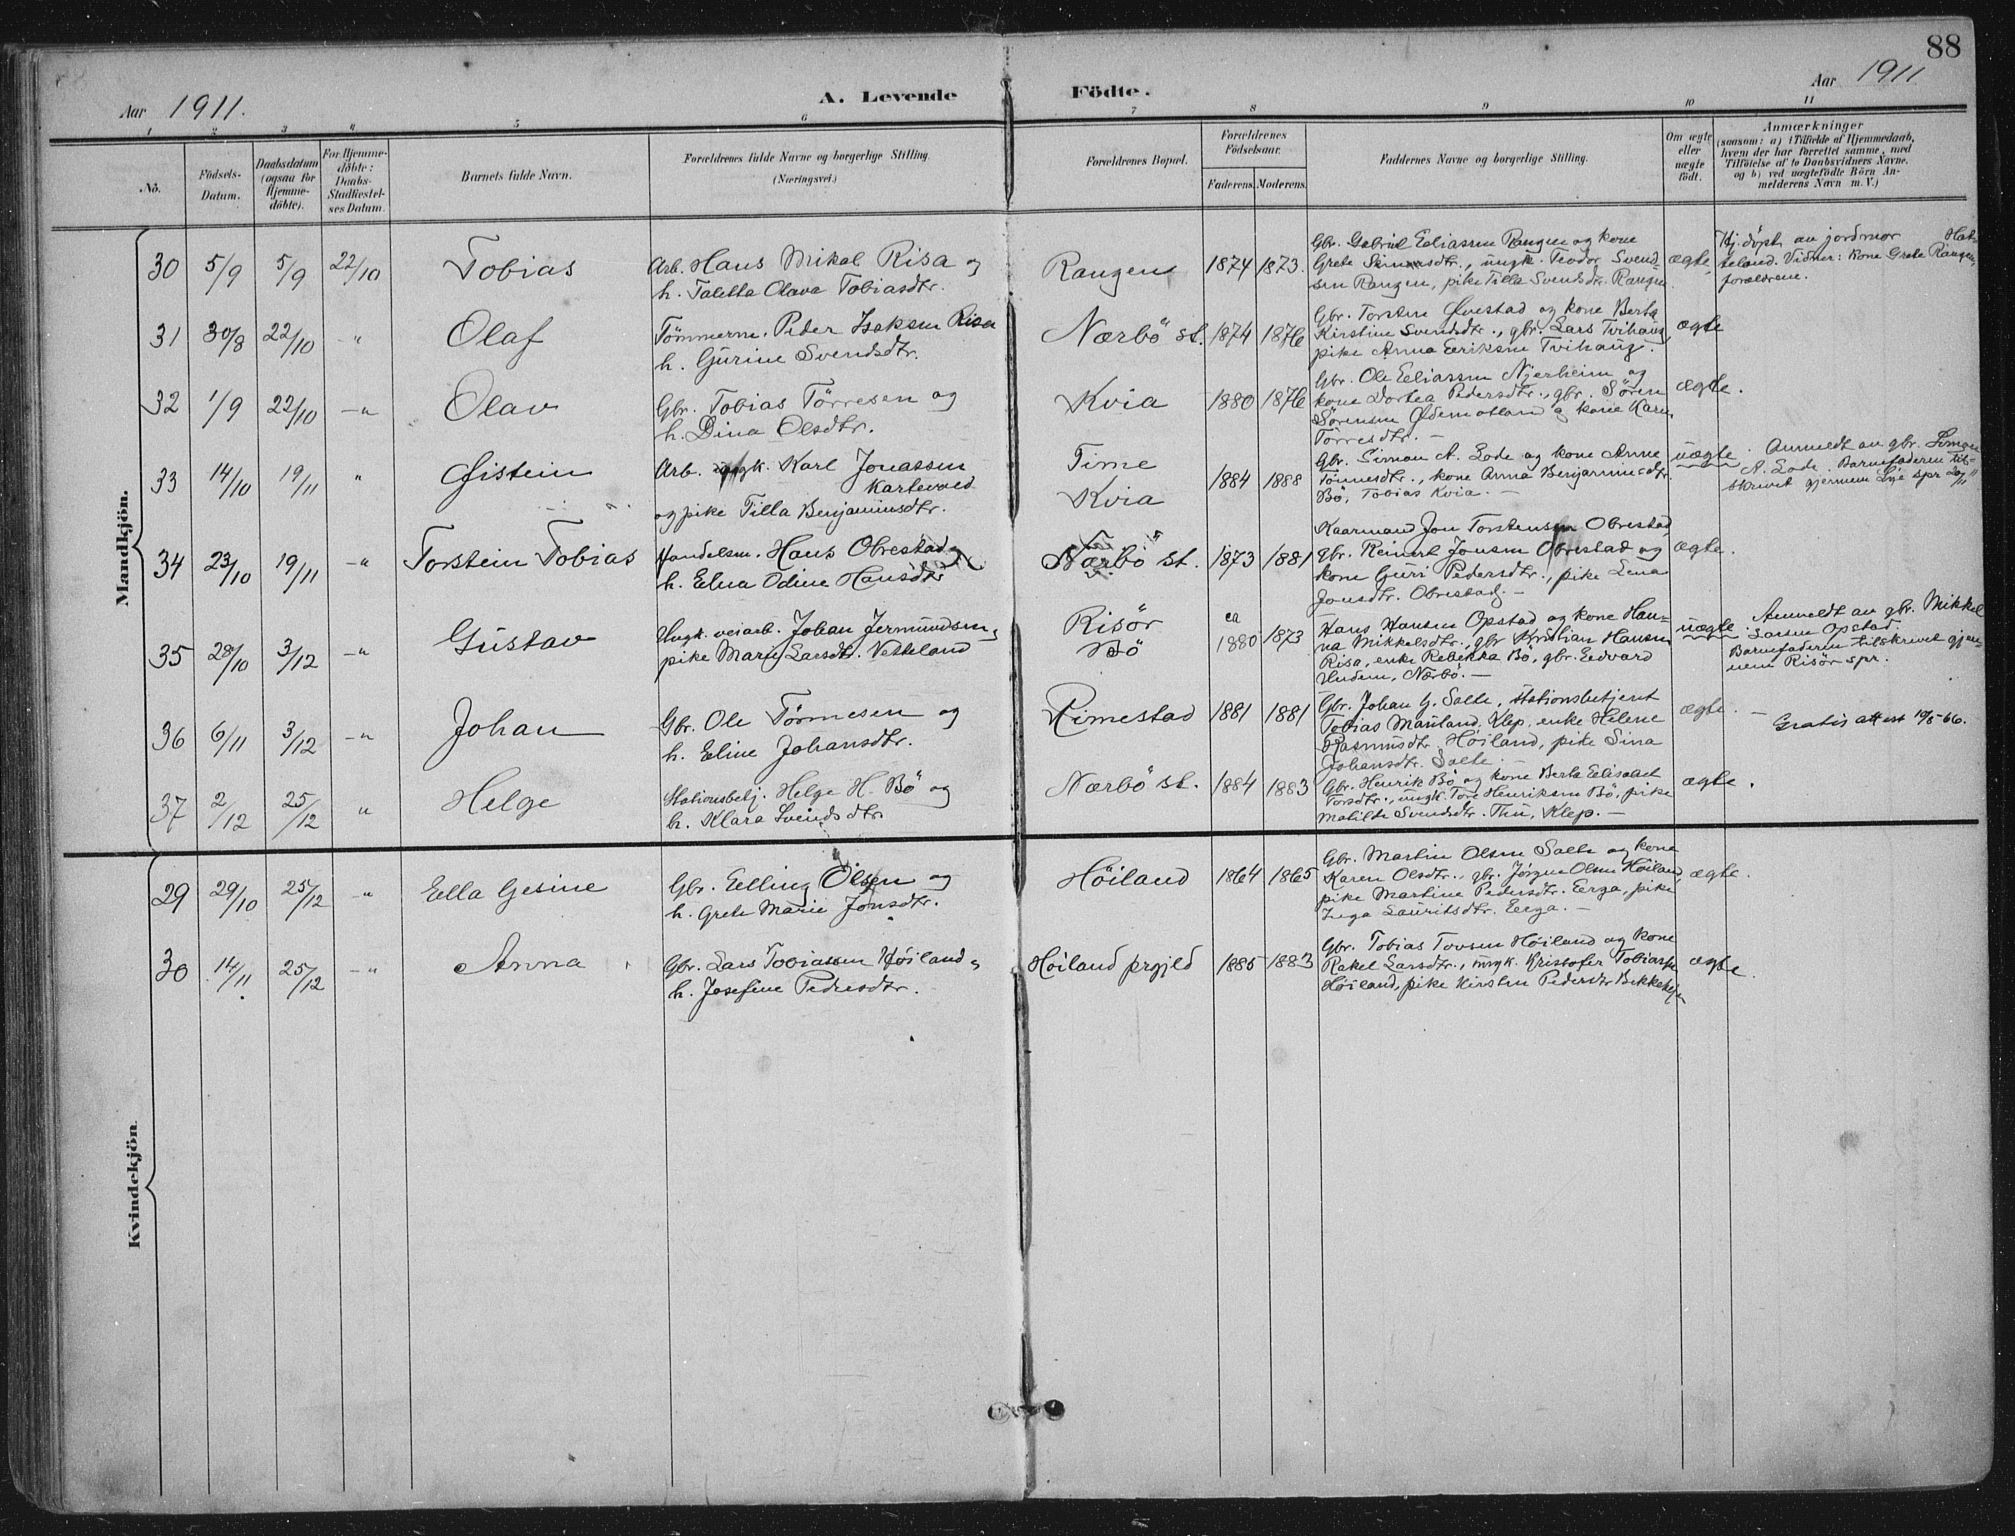 88
Aar 1911.
A. Levende Födte.
Aar 1911
1 2 3 4 5 6 7 8 9 10 11
No.
Födsels-Datum.
Daabsdatum (ogsaa for Hjemme-döbte).
For Hjemme-döbte: Daabs-Stadfæstel-ses Datum.
Barnets fulde Navn.
Forældrenes fulde Navne og borgerlige Stilling. (Næringsvei.)
Forældrenes Bopæl.
Forældrenes Födselsaar.
Faderens. Moderens.
Faddernes Navne og borgerlige Stilling.
Om ægte eller uægte födt.
Anmærkninger
(saasom: a) i Tilfælde af Hjemmedaab,
hvem der har forrettet samme, med
Tilföielse af to Daabsvidners Navne.
og b) ved uægtefödte Börn An-
melderens Navn m. V.)
Mandkjön.
30 5/9 5/9 22/10 Tobias
Arb. Hans Mikal Risa og
h. Taletta Olava Tobiasdtr.
Rangen 1874 1873.
Gbr. Gabriel Eeliassen Rangen og kone
Grete Simonsdtr., ungk. Teodor Svend-
sen Rangen, pike Tilla Svendsdtr. Rangen
ægte
Hj. döpt av jordmor Hat-
teland. Vidner: Kone Grete Rangen,
forældrene.
31 30/8 22/10 -"- Olaf
Tömmerm. Peder Isaksen Risa
h. Gurine Svendsdtr.
Nærbö st. 1874 1876
Gbr. Torsten Øvestad og kone Berta
Kirstine Svendsdtr., gbr. Lars Tvihaug
pike Anna Eeriksen Tvihaug.
ægte
32 1/9 22/10 -"- Olav
Gbr. Tobias Törresen og
h. Dina Olsdtr.
Kvia 1880 1876
Gbr. Ole Eeliassen Njerheim og
kone Dortea Pedersdtr., gbr. Sören
Sörensen Ødemotland og kone Karen
Törresdtr. -
ægte.
33 14/10 19/11 " Øistein
Arb. ungk. Karl Jonassen
Kartevold
og pike Tilla Benjaminsdtr.
Time
Kvia
1884 1888
Gbr. Simon A. Lode og kone Anne
Tönnesdtr., kone Anna Benjaminsdtr.
Bö, Tobias Kvia. -
uægte
Anmeldt av gbr. Simon
A. Lode. Barnefaderen til-
skrevet gjennem Lye spr 20/11
34 23/10 19/11 -"- Torstein Tobias
Handelsm. Hans Obrestad
h. Elna Odine Hansdtr
Nærbö st. 1873 1881
Kaarmand Jon Torstensen Obrestad,
gbr. Reinert Jonsen Obrestad og
kone Guri Pedersdtr., pike Lena
Jonsdtr. Obrestad. -
ægte.
35 28/10 3/12 -"- Gustav
Ungk. veiarb. Johan Jermundsen,
pike Marie Larsdtr. Vetteland
Risör
Bö
ca
1880 1873
Hans Hansen Opstad og kone Han-
na Mikkelsdtr., gbr Kristian Hansen
Risa, enke Rebekka Bö, gbr. Eedvard
Undem, Nærbö. -
uægte
Anmeldt av gbr. Mikkel
Larsen Opstad.
Barnefaderen tilskrevet gjen-
nem Risör spr.
36 6/11 3/12 -"- Johan
Gbr. Ole Tönnesen og
h. Eline Johansdtr.
Rimestad 1881 1881
Gbr. Johan G. Salte, stationsbetjent
Tobias Mauland, Klep, enke Helene
Rasmusdtr. Höiland, pike Sina
Johansdtr. Salte. -
ægte. -
Gratis attest 10/5-66.
37 2/12 25/12 " Helge
Stationsbetj. Helge H. Bö og
h. Klara Svendsdtr.
Nærbö st. 1884 1883
Gbr. Henrik Bö og kone Berta Eelisabet
Torsdtr., ungk. Tore Henriksen Bö, pike
Matilde Svendsdtr. Thu, Klep. -
ægte.
Kvindekjön.
29 29/10 25/12 -"- Eella Gesine
Gbr. Eelling Olsen og
h. Grete Marie Jonsdtr.
Höiland 1864 1865
Gbr. Martin Olsen Salte og kone
Karen Olsdtr., gbr. Jörgen Olsen Höiland,
pike Martine Pedersdtr. Eerga, pike
Inga Lauritsdtr. Eerga. -
ægte.
30 14/11 25/12 -"- Anna
Gbr. Lars Tobiassen Höiland,
h. Josefine Pedersdtr.
Höiland prgjld 1885 1883
Gbr. Tobias Tovsen Höiland og kone
Rakel Larsdtr., ungk. Kristofer Tobiassen
Höiland, pike Kirsten Pedersdtr
ægte.